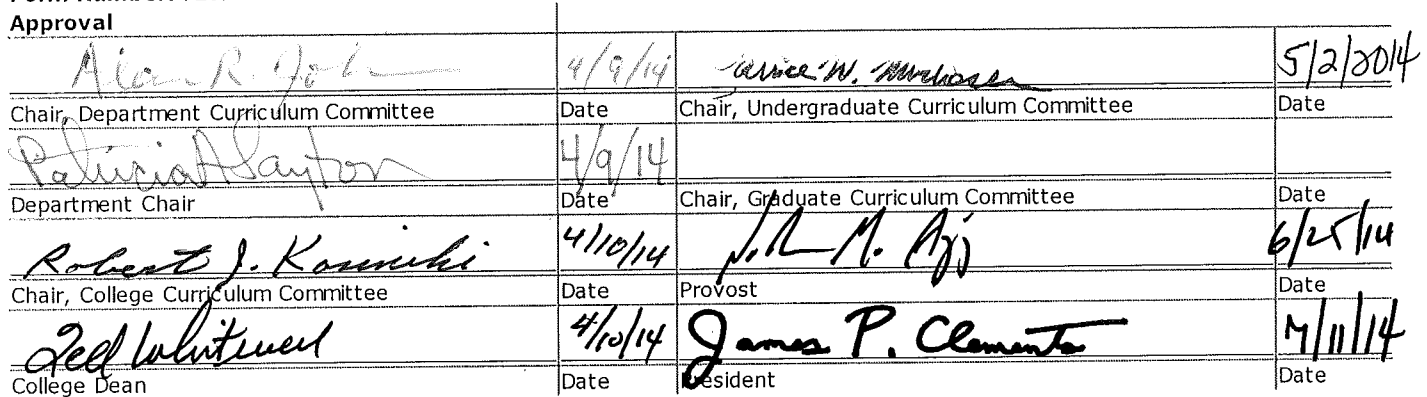 Approval
Alan R. Joh 4/9/14 Janice W. 5/2/2014
Chair, Department Curriculum Committee Date Chair, Undergraduate Curriculum Committee Date
Patricia A Layton 4/9/14
Department Chair Date Chair, Graduate Curriculum Committee Date
Robert J. Kosinski 4/10/14 M. 6/25/14
Chair, College Curriculum Committee Date Provost Date
Ted Whitwell 4/10/14 James P. Clements 7/11/14
College Dean Date President Date